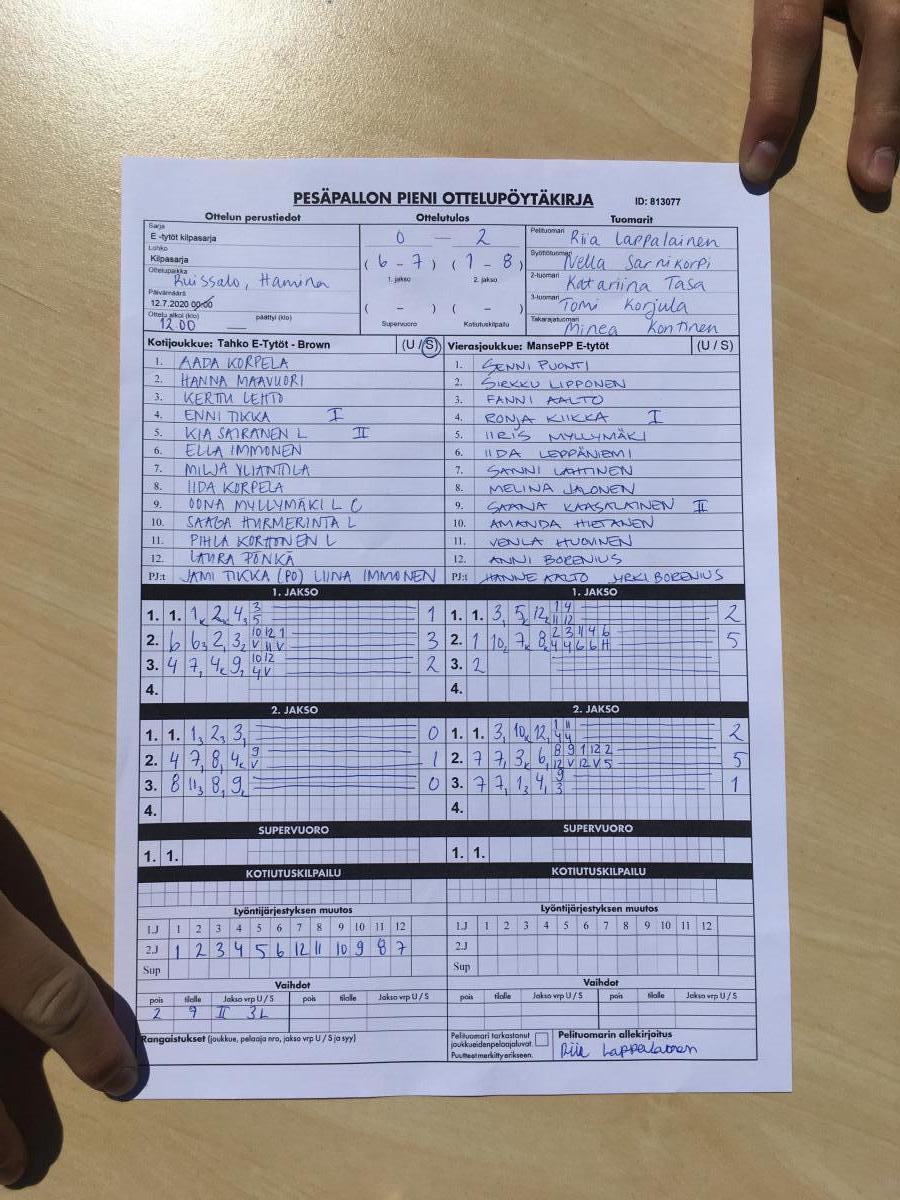 PESÄPALLON PIENI OTTELUPÖYTÄKIRJA ID: 813077
Ottelun perustiedot Ottelutulos Tuomarit
Sarja
E -tytöt kilpasarja
Lohko
Kilpasarja
Ottelupaikka
Ruissalo, Hamina
Päivämäärä
12.7.2020 00:00
Ottelu alkoi (klo) päättyi (klo)
12.00
0 — 2
( 6 - 7 ) ( 1 - 8 )
1. jakso 2. jakso
( - ) ( - )
Supervuoro Kotiutuskilpailu
Pelituomari Riia Lappalainen
Syöttötuomari Nella Sarnikorpi
2-tuomari Katariina Tasa
3-tuomari Tomi Korjula
Takarajatuomari Minea Kontinen
Kotijoukkue: Tahko E-Tytöt - Brown (U / S) Vierasjoukkue: MansePP E-tytöt (U / S)
1. AADA KORPELA 1. SENNI PUONTI
2. HANNA MAAVUORI 2. SIRKKU LIPPONEN
3. KERTTU LEHTO 3. FANNI AALTO
4. ENNI TIKKA I 4. RONJA KIIKKA I
5. KIA SAIRANEN L II 5. IIRIS MYLLYMÄKI
6. ELLA IMMONEN 6. IIDA LEPPÄNIEMI
7. MILJA YLIANTTILA 7. SANNI LAHTINEN
8. IIDA KORPELA 8. MELINA JALONEN
9. OONA MYLLYMÄKI L C 9. SAANA KAASALAINEN II
10. SAAGA HURMERINTA L 10. AMANDA HIETANEN
11. PIHLA KORHONEN L 11. VENLA HUOVINEN
12. LAURA PÖNKÄ 12. ANNI BORENIUS
PJ:t JAMI TIKKA (PO) LIINA IMMONEN PJ:t HANNE AALTO JYRKI BORENIUS
1. JAKSO 1. JAKSO
1. 1. 1 2 4 3 5 1 1. 1. 3 5 12 1 4 11 12 2
2. 6 6 2 3 10 12 1 V 11 V 3 2. 1 10 7 8 2 3 11 4 6 4 4 6 6 H 5
3. 4 7 4 9 10 12 4 V 2 3. 2
4. 4.
2. JAKSO 2. JAKSO
1. 1. 1 2 3 0 1. 1. 3 10 12 1 11 4 4 2
2. 4 7 8 4 9 V 1 2. 7 7 3 6 8 9 1 12 2 12 V 12 V 5 5
3. 8 11 8 9 0 3. 7 7 1 4 9 3 1
4. 4.
SUPERVUORO SUPERVUORO
1. 1. 1. 1.
KOTIUTUSKILPAILU KOTIUTUSKILPAILU
Lyöntijärjestyksen muutos Lyöntijärjestyksen muutos
1.J 1 2 3 4 5 6 7 8 9 10 11 12 1.J 1 2 3 4 5 6 7 8 9 10 11 12
2.J 1 2 3 4 5 6 12 11 10 9 8 7 2.J
Sup Sup
Vaihdot Vaihdot
pois tilalle Jakso vrp U / S pois tilalle Jakso vrp U / S pois tilalle Jakso vrp U / S pois tilalle Jakso vrp U / S
2 9 II 3L
Rangaistukset (joukkue, pelaaja nro, jakso vrp U / S ja syy)
Pelituomari tarkastanut
joukkueidenpelaajaluvat.
Puutteetmerkittyerikseen.
Pelituomarin allekirjoitus
Riia Lappalainen